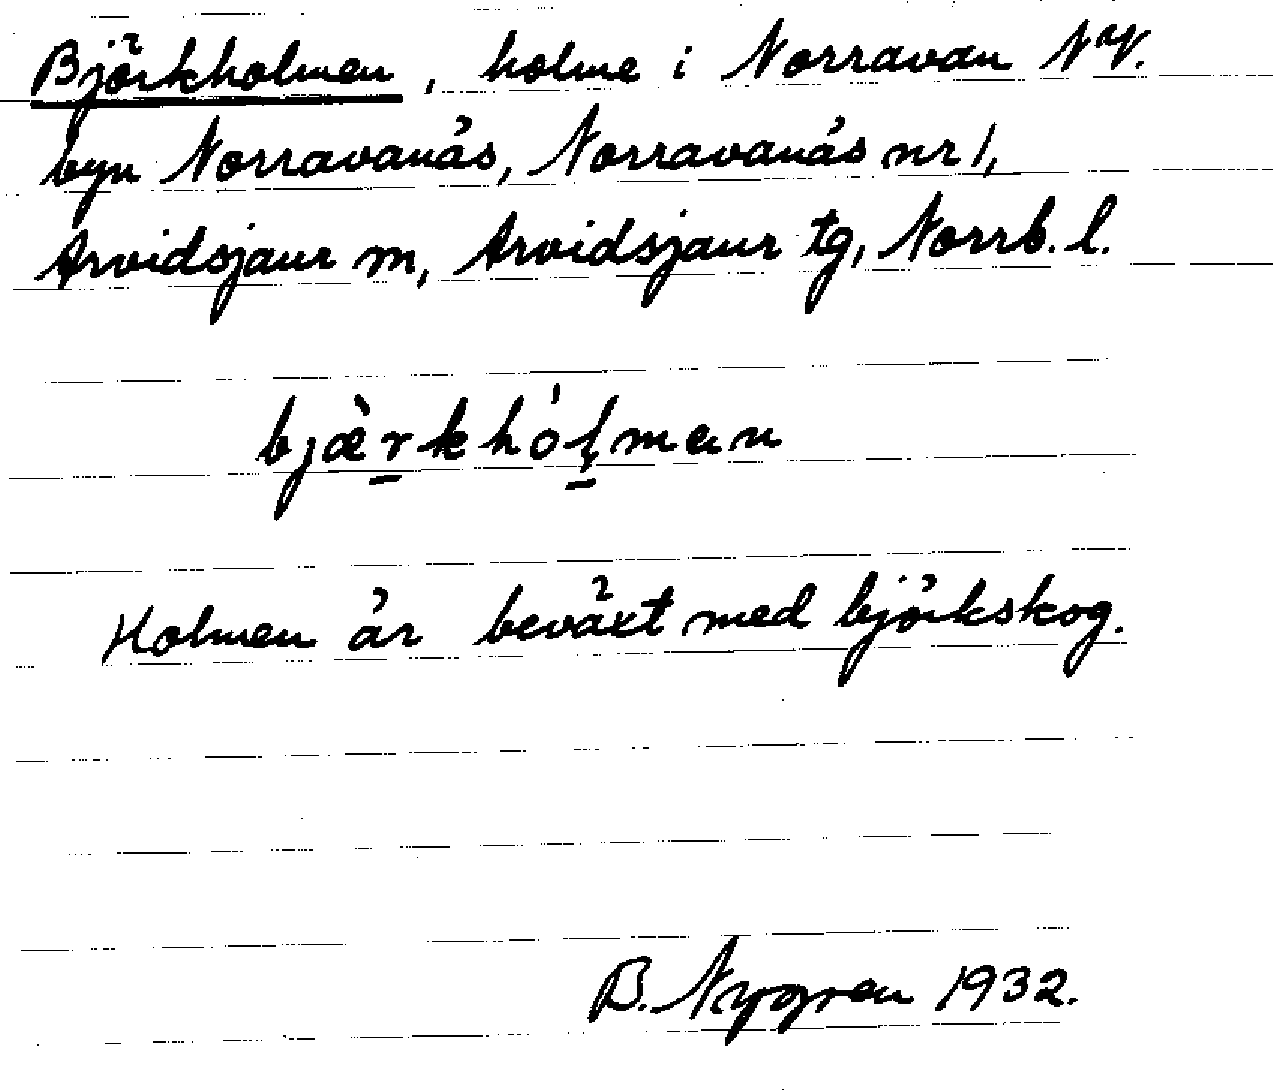 Björkholmen, holme i Norravan NV.
byn Norravanäs, Norravanäs nr 1,
Arvidsjaur m, Arvidsjaur tg, Norrb. l.
bjæ̀r̠khól̠man
Holmen är beväxt med björkskog.
B. Nygren 1932.